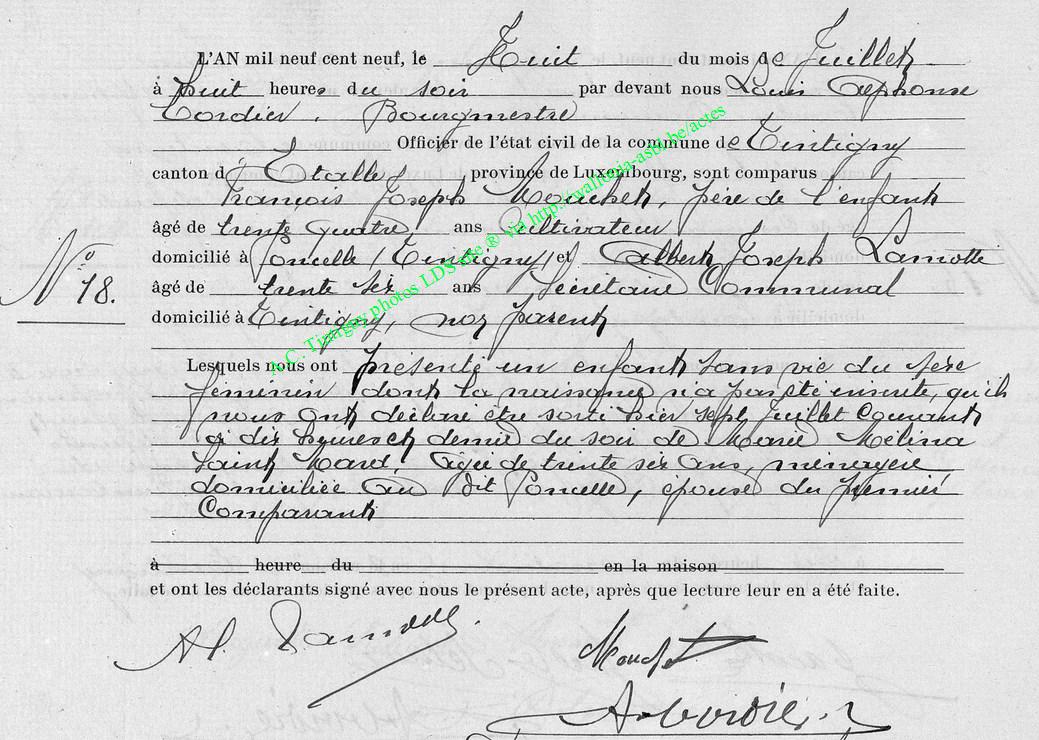 L'AN mil neuf cent neuf, le Huit du mois de Juillet
à huit heures du soir par devant nous Louis Alphonse
Cordier, Bourgmestre
Officier de l'état civil de la commune de Tintigny
canton d'Etalle, province de Luxembourg, sont comparus
François Joseph Mouchet, père de l'enfant
âgé de trente quatre ans Cultivateur
domicilié à Poncelle (Tintigny) et Albert Joseph Lamotte
N° 18.
âgé de trente six ans Secrétaire Communal
domicilié à Tintigny, non parent
Lesquels nous ont présenté un enfant sans vie du sexe
féminin dont la naissance n'a pas été inscrite, qu'ils
nous ont déclaré être sorti hier sept Juillet Courant
à dix heures et demie du soir de Marie Mélina
Saint Mard, agée de trente six ans, ménagère
domiciliée au dit Poncelle, épouse du premier
Comparant
à heure du en la maison
et ont les déclarants signé avec nous le présent acte, après que lecture leur en a été faite.
Al Lamotte.
Mouchet
A. Cordier
A.C. Tintigny photos LDS site ® via http://wallonia-asbl.be/actes